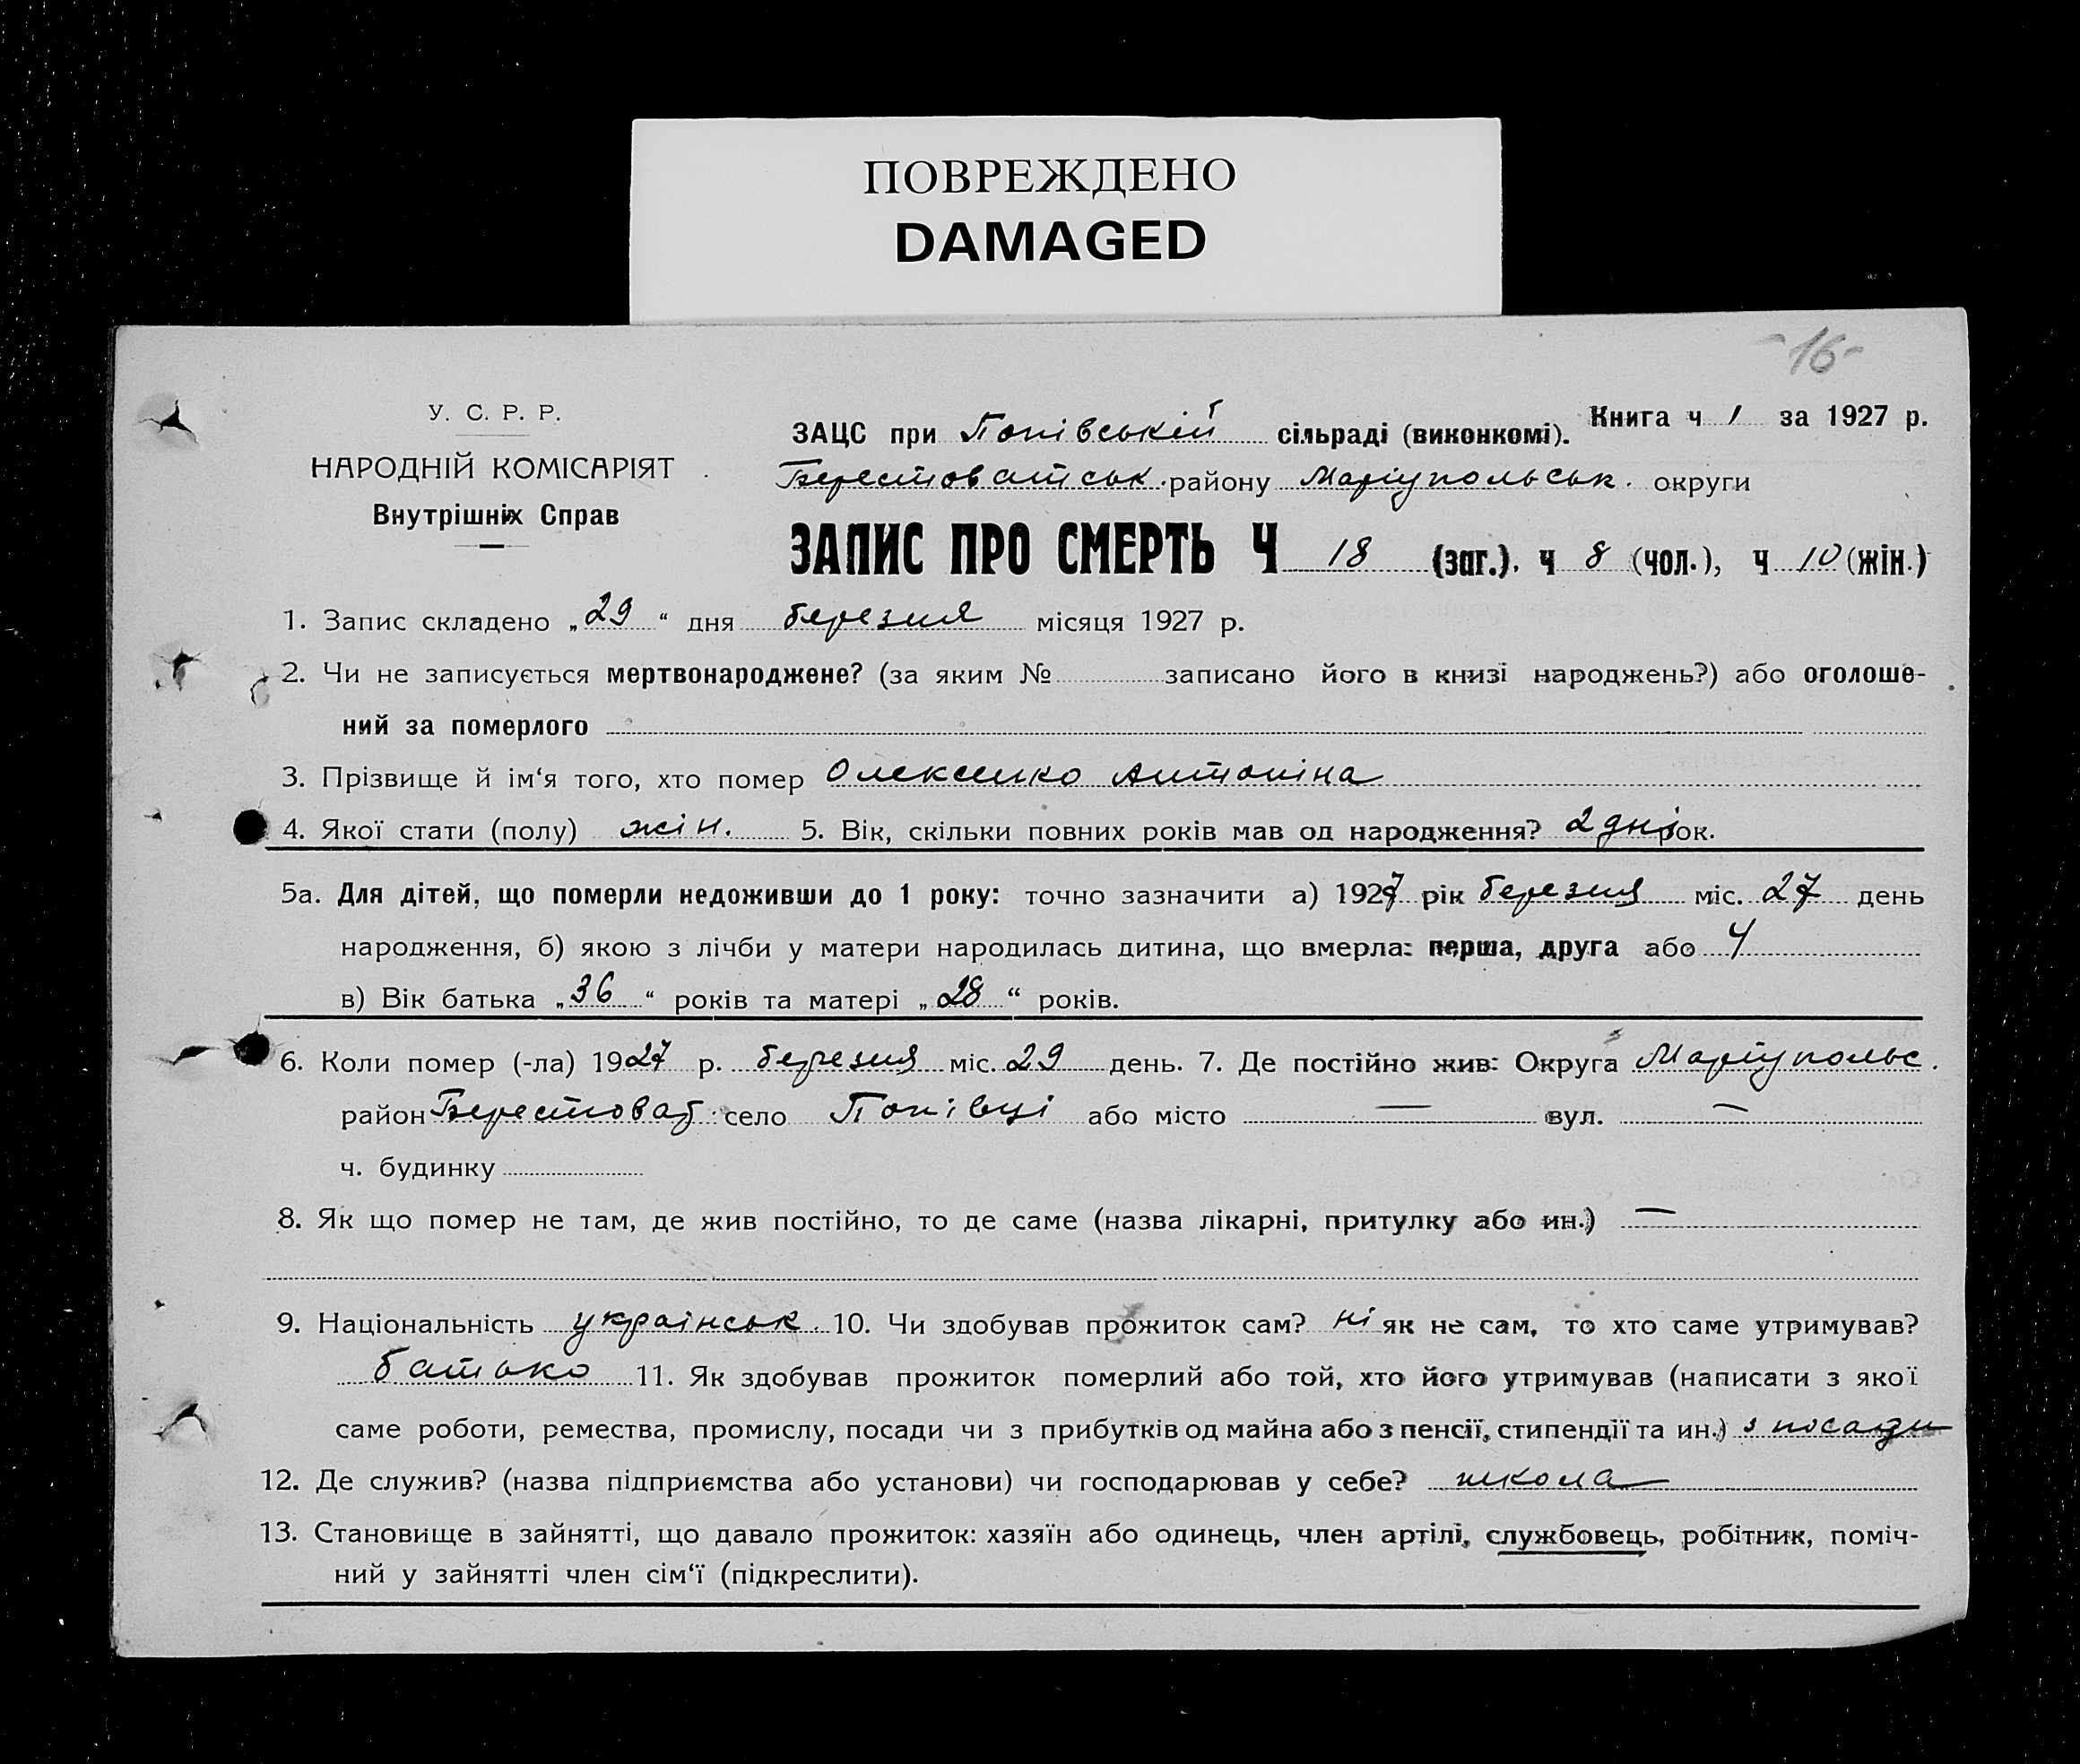 ПОВРЕЖДЕНО
DAMAGED
-16-
У. С. Р. Р.
НАРОДНІЙ КОМІСАРІЯТ
Внутрішніх Справ
Книга ч 1 за 1927 р.
ЗАЦС при Попівській сільраді (виконкомі).
Берестоватськ. району Маріупольськ. округи
ЗАПИС ПРО СМЕРТЬ Ч 18 (заг.). ч 8 (чол.), ч 10 (жін.)
1. Запис складено „29“ дня березня місяця 1927 р.
2. Чи не записується мертвонароджене? (за яким № записано його в книзі народжень?) або оголоше-
ний за померлого
3. Прізвище й ім‘я того, хто помер Олексенко Антоніна
4. Якої стати (полу) жін. 5. Вік, скільки повних років мав од народження? 2 дні рок.
5а. Для дітей, що померли недоживши до 1 року: точно зазначити а) 1927 рік березня міс. 27 день
народження, б) якою з лічби у матери народилась дитина, що вмерла: перша, друга або 4
в) Вік батька „36“ років та матері „28“ років.
6. Коли помер (-ла) 1927 р. березня міс. 29 день. 7. Де постійно жив: Округа Маріупольс.
район Берестоват. село Попівці або місто — вул. —
ч. будинку
8. Як що помер не там, де жив постійно, то де саме (назва лікарні, притулку або ин.) —
9. Національність українськ. 10. Чи здобував прожиток сам? ні як не сам, то хто саме утримував?
батько 11. Як здобував прожиток померлий або той, хто його утримував (написати з якої
саме роботи, ремества, промислу, посади чи з прибутків од майна або з пенсії, стипендії та ин.) з посади
12. Де служив? (назва підприємства або установи) чи господарював у себе? школа
13. Становище в зайнятті, що давало прожиток: хазяїн або одинець, член артілі, службовець, робітник, поміч-
ний у зайнятті член сім‘ї (підкреслити).